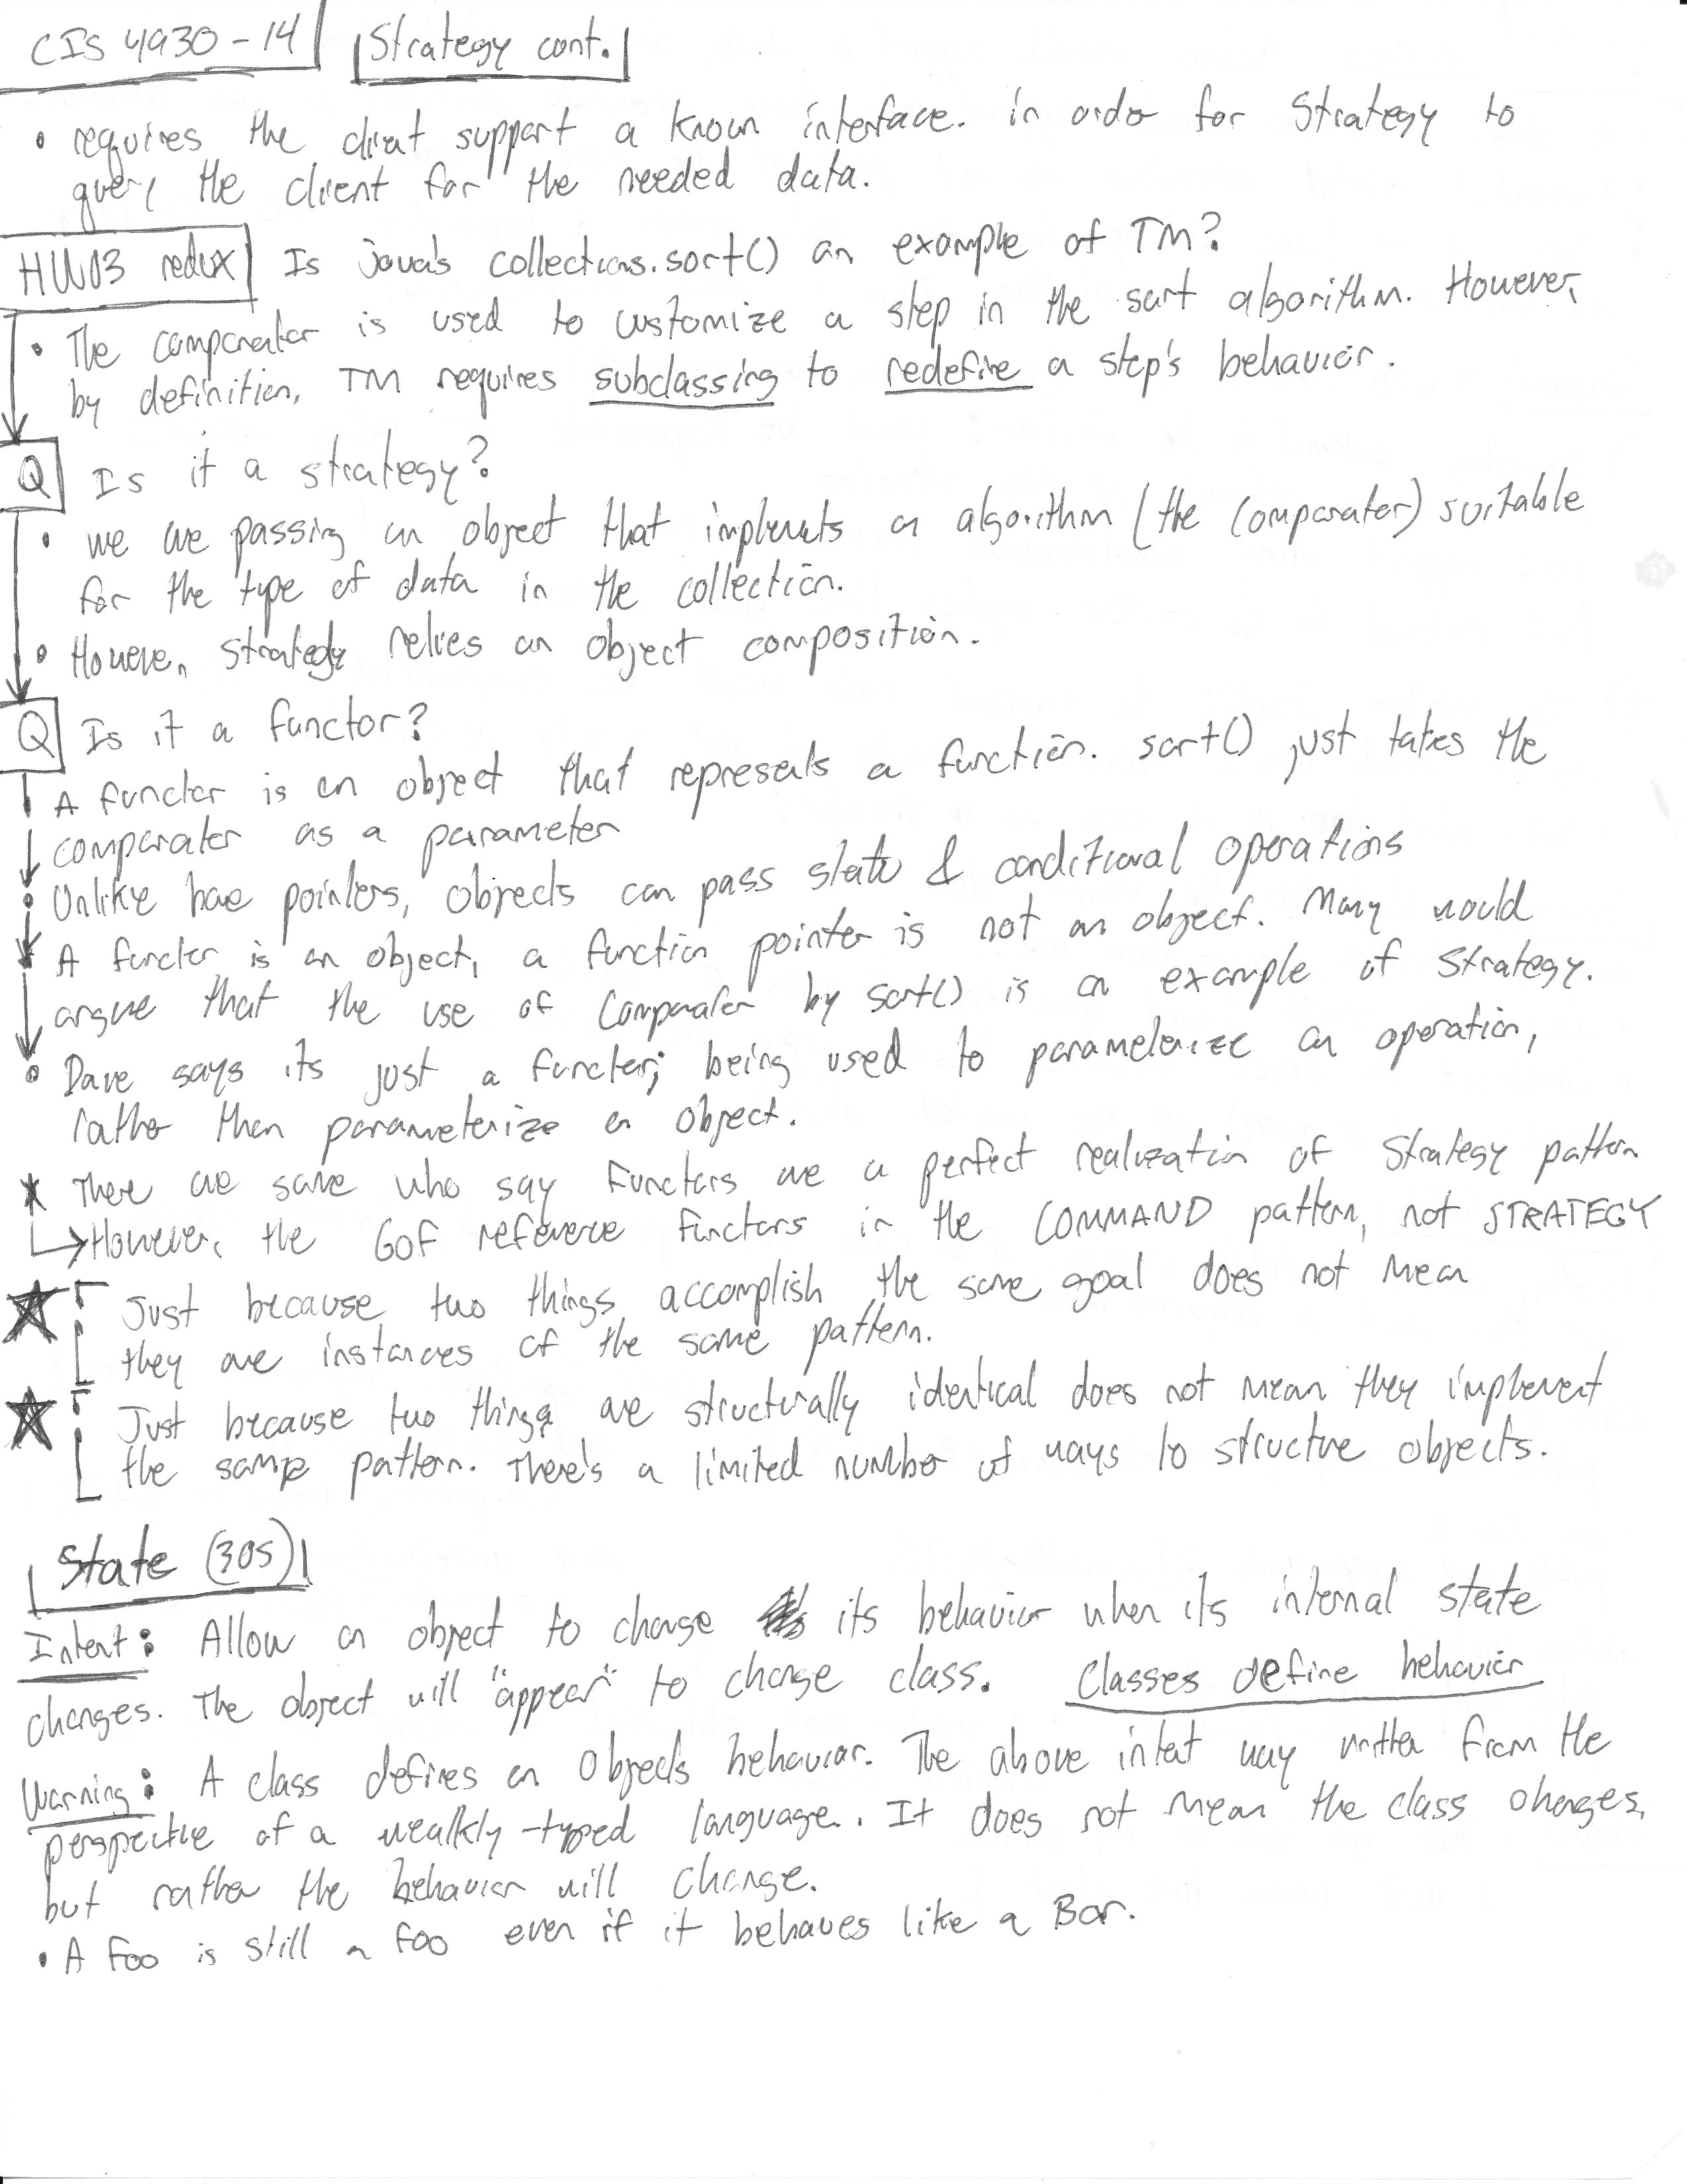 CIS 4930-14 Strategy cont.
• requires the client support a known interface. in order for Strategy to
query the client for the needed data.
HW03 redux Is java's collections.sort() an example of TM?
• The comparator is used to customize a step in the sort algorithm. However,
by definition, TM requires subclassing to redefine a step's behavior.
Q Is it a strategy?
• we are passing an object that implements an algorithm (the comparator) suitable
for the type of data in the collection.
• However, strategy relies on object composition.
Q Is it a functor?
A functor is an object that represents a function. sort() just takes the
comparator as a parameter
• Unlike bare pointers, objects can pass state & conditional operations
• A functor is an object, a function pointer is not an object. Many would
argue that the use of Comparator by sort() is an example of strategy.
• Dave says its just a functor; being used to parameterize an operation,
rather then parameterize an object.
* There are some who say Functors are a perfect realization of Strategy pattern
↳ However, the GoF reference Functors in the COMMAND pattern, not STRATEGY
★ Just because two things accomplish the same goal does not mean
they are instances of the same pattern.
★ Just because two things are structurally identical does not mean they implement
the same pattern. There's a limited number of ways to structure objects.
State (305)
Intent: Allow an object to change its behavior when its internal state
changes. The object will "appear" to change class. Classes define behavior
Warning: A class defines an Objects behavior. The above intent way written from the
perspective of a wealkly-typed language. It does not mean the class changes,
but rather the behavior will change.
• A Foo is still a Foo even if it behaves like a Bar.